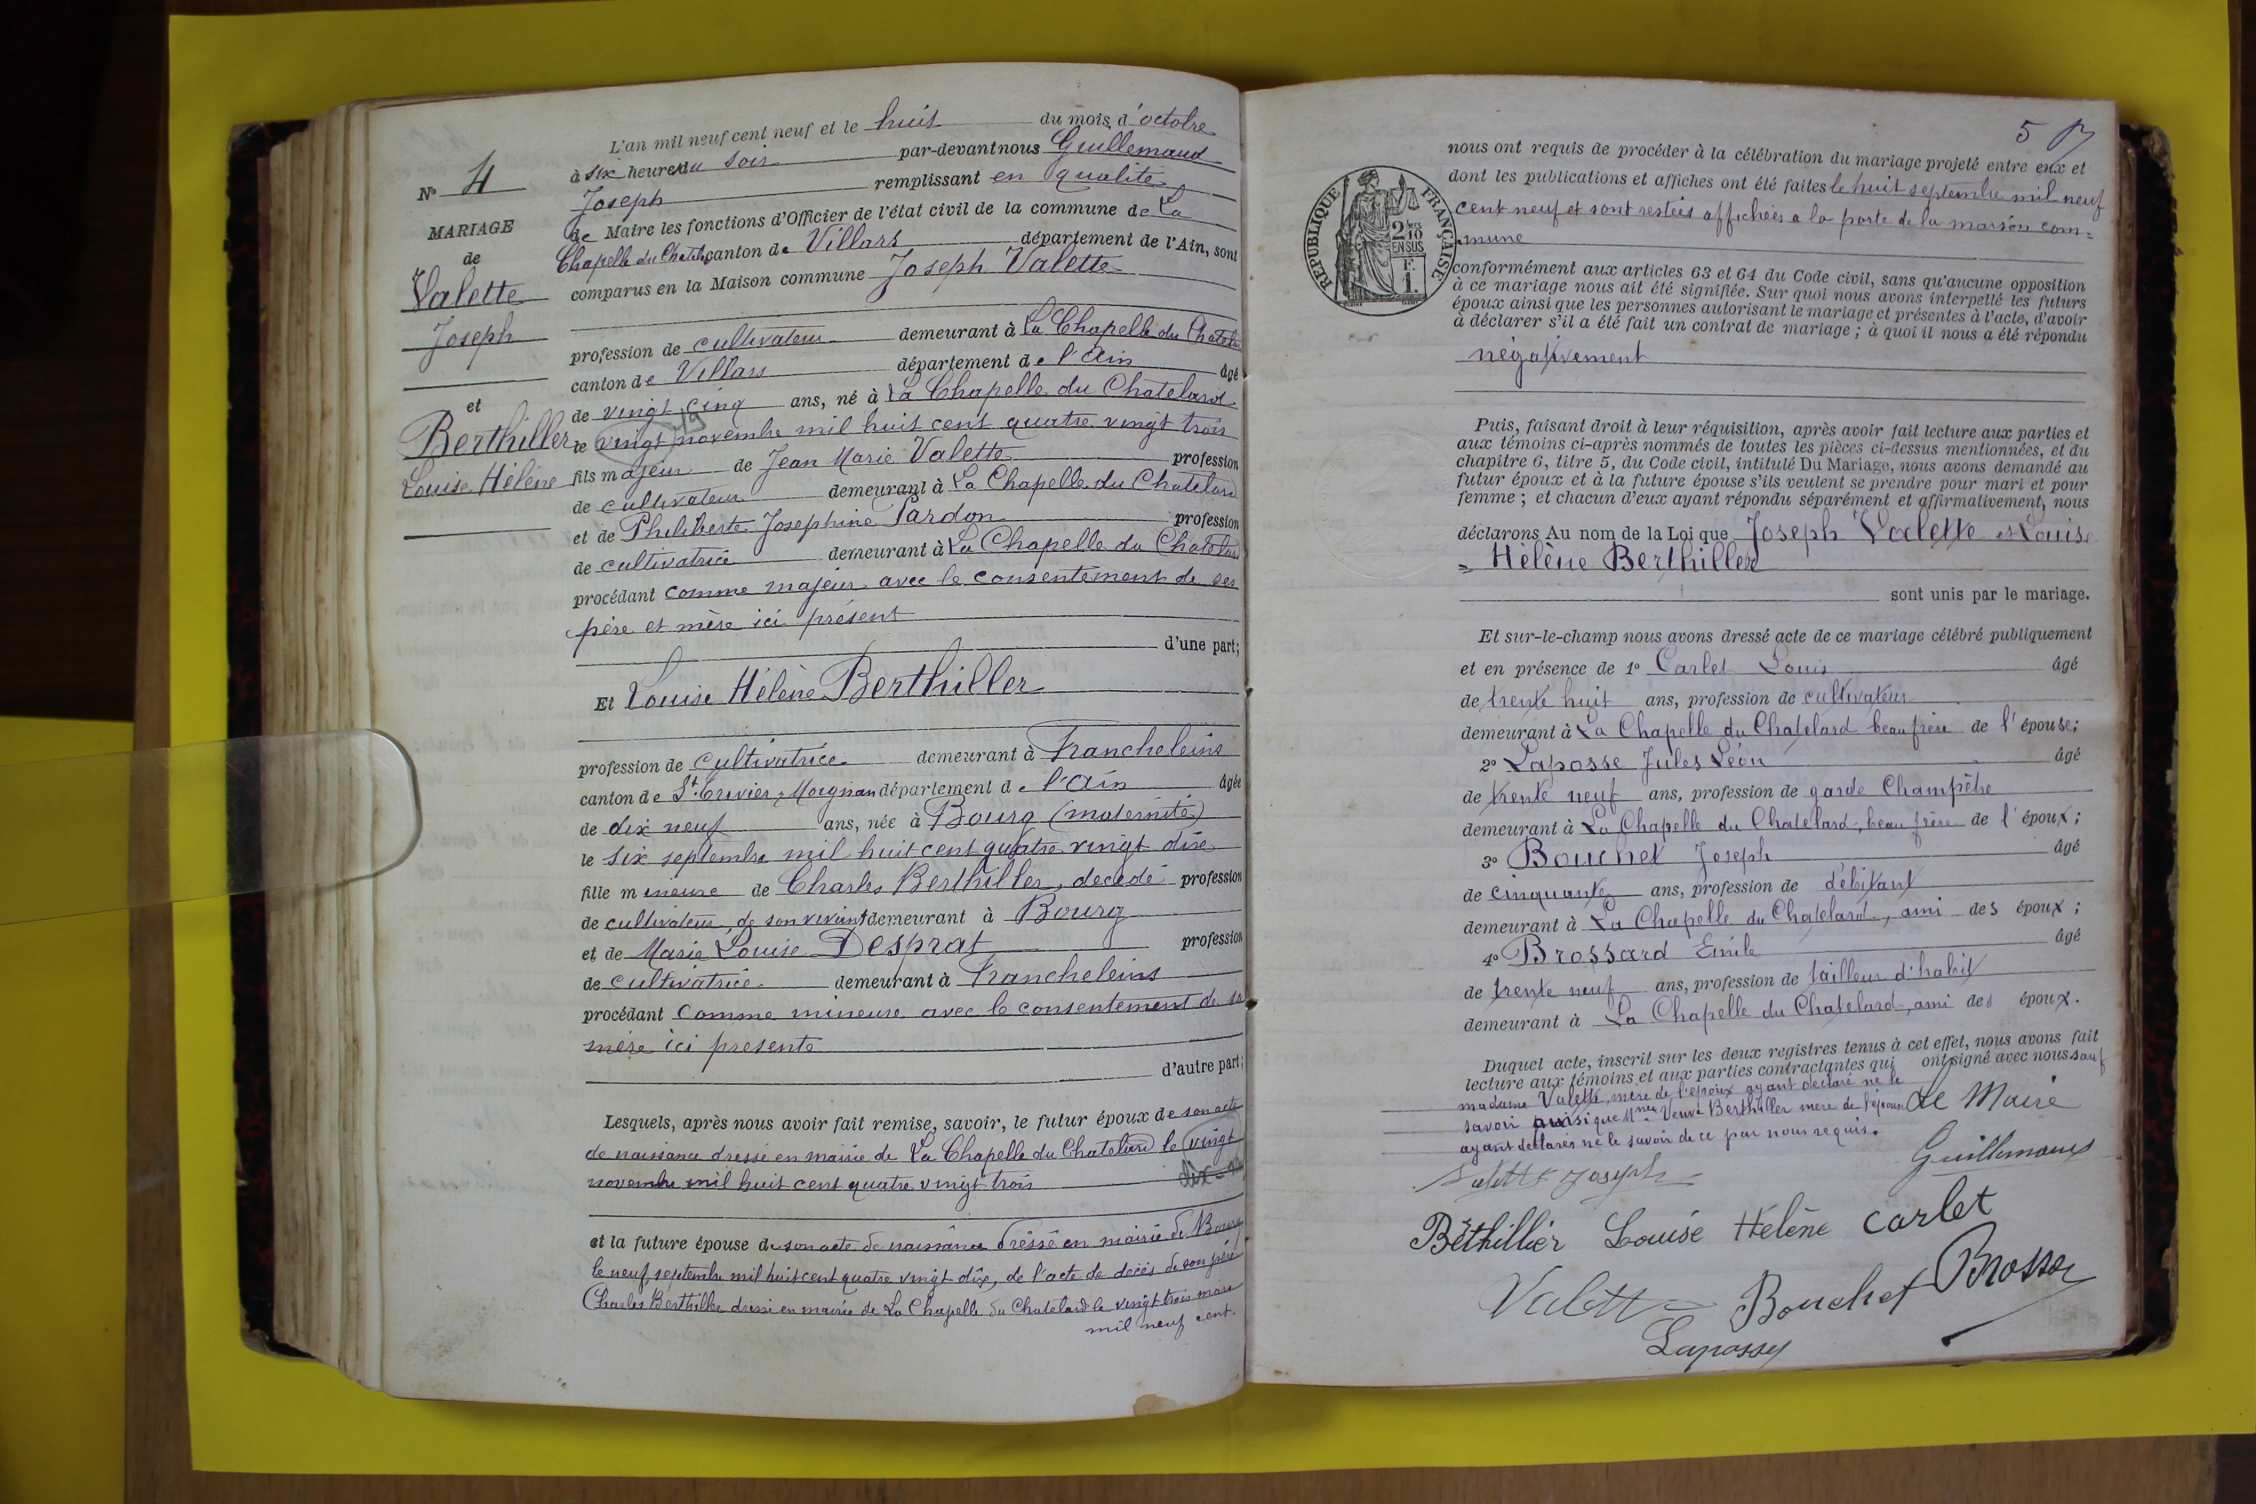 L'an mil neuf cent neuf et le huit du mois d'octobre
à six heures du soir par-devant nous Guillemaud
Joseph remplissant en qualité
de Maire les fonctions d'Officier de l'état civil de la commune de La
Chapelle du Chatel canton de Villars département de l'Ain, sont
comparus en la Maison commune Joseph Valette
profession de cultivateur demeurant à La Chapelle du Chatelard
canton de Villars département de l'Ain âgé
de vingt cinq ans, né à La Chapelle du Chatelard
19
le vingt novembre mil huit cent quatre vingt trois
fils majeur de Jean Marie Valette profession
de cultivateur demeurant à La Chapelle du Chatelard
et de Philiberte Josephine Pardon profession
de cultivatrice demeurant à La Chapelle du Chatelard
procédant comme majeur avec le consentement de ses
père et mère ici présent
d'une part;
Et Louise Hélène Berthiller
profession de cultivatrice demeurant à Francheleins
canton de St. Trivier s/ Moignans département de l'Ain âgée
de dix neuf ans, née à Bourg (maternité)
le six septembre mil huit cent quatre vingt dix
fille mineure de Charles Berthiller, décédé profession
de cultivateur de son vivant demeurant à Bourg
et de Marie Louise Desprat profession
de cultivatrice demeurant à Francheleins
procédant comme mineure avec le consentement de sa
mère ici présente
d'autre part;
Lesquels, après nous avoir fait remise, savoir, le futur époux de son acte
de naissance dressé en mairie de La Chapelle du Chatelard le vingt
novembre mil huit cent quatre vingt trois
et la future épouse de son acte de naissance dressé en mairie de Bourg
le neuf septembre mil huit cent quatre vingt dix, de l'acte de décès de son père
Charles Berthiller dressé en mairie de La Chapelle du Chatelard le vingt trois mars
mil neuf cent.
N° 4
MARIAGE
de
Valette
Joseph
et
Berthiller
Louise Hélène
5
RÉPUBLIQUE FRANÇAISE
2/10 EN SUS
F. 1.
nous ont requis de procéder à la célébration du mariage projeté entre eux et
dont les publications et affiches ont été faites le huit septembre mil neuf
cent neuf et sont restées affichées a la porte de la maison com=
mune
conformément aux articles 63 et 64 du Code civil, sans qu'aucune opposition
à ce mariage nous ait été signifiée. Sur quoi nous avons interpellé les futurs
époux ainsi que les personnes autorisant le mariage et présentes à l'acte, d'avoir
à déclarer s'il a été fait un contrat de mariage ; à quoi il nous a été répondu
négativement
Puis, faisant droit à leur réquisition, après avoir fait lecture aux parties et
aux témoins ci-après nommés de toutes les pièces ci-dessus mentionnées, et du
chapitre 6, titre 5, du Code civil, intitulé Du Mariage, nous avons demandé au
futur époux et à la future épouse s'ils veulent se prendre pour mari et pour
femme ; et chacun d'eux ayant répondu séparément et affirmativement, nous
déclarons Au nom de la Loi que Joseph Valette et Louise
= Hélène Berthiller
sont unis par le mariage.
Et sur-le-champ nous avons dressé acte de ce mariage célébré publiquement
et en présence de 1° Carlet Louis âgé
de trente huit ans, profession de cultivateur
demeurant à La Chapelle du Chatelard beau frère de l'épouse;
2° Laposse Jules Léon âgé
de trente neuf ans, profession de garde Champêtre
demeurant à La Chapelle du Chatelard, beau frère de l'époux;
3° Bouchet Joseph âgé
de cinquante ans, profession de débitant
demeurant à La Chapelle du Chatelard, ami des époux;
4° Brossard Emile âgé
de trente neuf ans, profession de tailleur d'habit
demeurant à La Chapelle du Chatelard, ami des époux.
Duquel acte, inscrit sur les deux registres tenus à cet effet, nous avons fait
lecture aux témoins et aux parties contractantes qui ont signé avec nous sauf
madame Valette, mère de l'époux ayant déclaré ne le
savoir ainsi que Mme Veuve Berthiller mère de l'épouse
ayant déclarer ne le savoir de ce par nous requis.
Le Maire
Guillemaud
Valette Joseph
Béthillier Louise Hélène Carlet
Valette Bouchet Brossar
Laposse